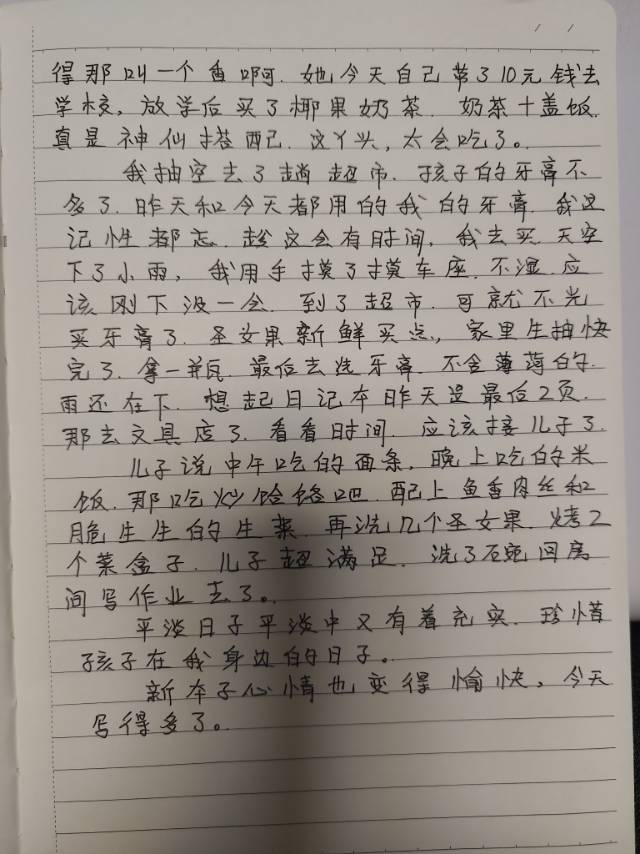 得那叫一个香啊. 她今天自己带了10元钱去
学校, 放学后买了椰果奶茶. 奶茶十盖饭.
真是神仙搭配. 这丫头, 太会吃了。
我抽空去了趟超市. 孩子的牙膏不
多了. 昨天和今天都用的我的牙膏. 我这
记性都忘. 趁这会有时间, 我去买. 天空
下了小雨, 我用手摸了摸车座. 不湿. 应
该刚下没一会. 到了超市. 可就不光
买牙膏了. 圣女果新鲜买点, 家里生抽快
完了. 拿一瓶. 最后去选牙膏. 不含薄荷的.
雨还在下. 想起日记本昨天是最后2页.
那去文具店了. 看看时间. 应该接儿子了.
儿子说中午吃的面条, 晚上吃的米
饭. 那吃炒饸饹吧. 配上鱼香肉丝和
脆生生的生菜. 再洗几个圣女果. 烤2
个菜盒子. 儿子超满足. 洗了碗回房
间写作业去了。
平淡日子平淡中又有着充实. 珍惜
孩子在我身边的日子。
新本子心情也变得愉快, 今天
写得多了。